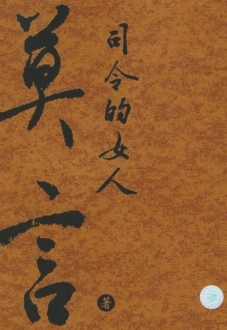 司令的女人
莫言
著